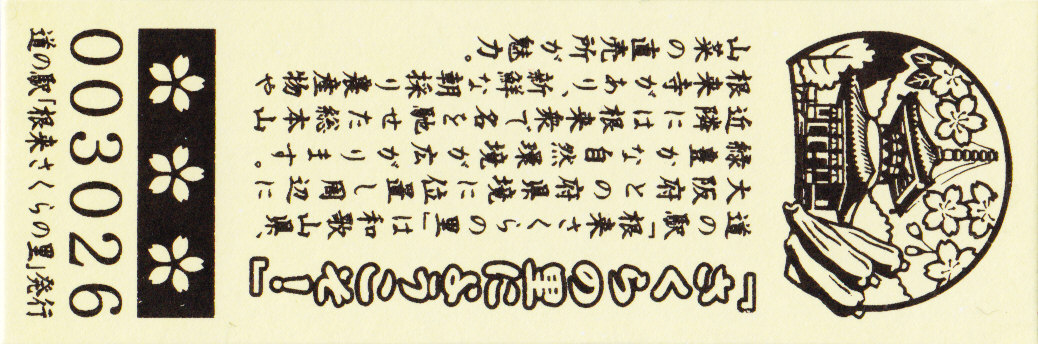 「さくらの里にようこそ!」
道の駅「根来さくらの里」は和歌山県、
大阪との府県境に位置し周辺に
緑豊かな自然環境が広がります。
近隣には根来衆で名を馳せた総本山
根来寺があり、新鮮な朝採り農産物や
山菜の直売所が魅力。
003026
道の駅「根来さくらの里」発行